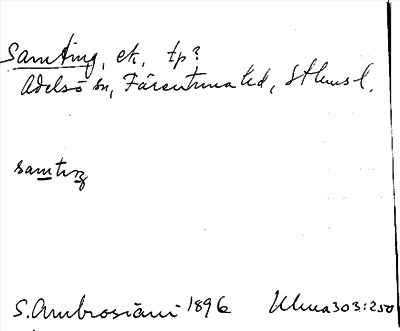 Samting, ek, tp?
Adelsö sn, Färentuna hd, Sthms l.
samtıŋ
S. Ambrosiani 1896 Ulma 303:250